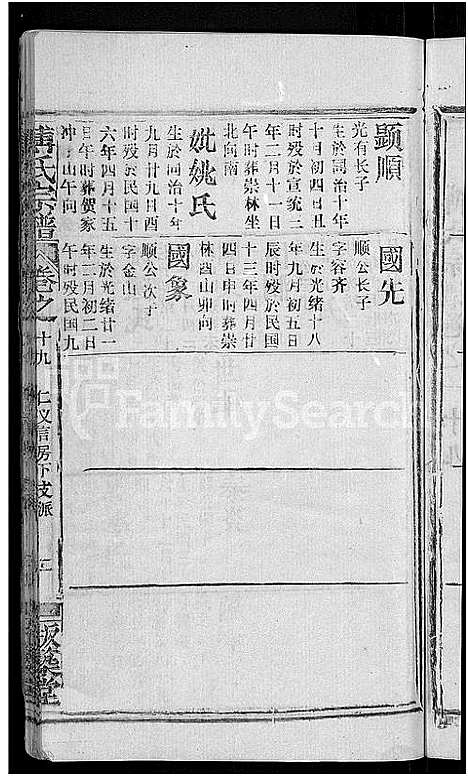 顕順
光有长子
生於同治十年
十月初四日丑
时殁於宣统二
年二月十一日
午时葬崇林坐
北向南
妣姚氏
生於同治十年
九月廿九日酉
时殁於民国十
六年四月十五
日午时葬贺家
冲山午向
國先
顺公长子
字容齐
生於光绪十八
年九月初五日
辰时殁於民国
十三年四月廿
四日申时葬崇
林酉山卯向
國象
顺公次子
字金山
生於光绪廿一
年二月初二日
午时殁民国九
氏宗譜
卷之十九
仁义信房下支派
板築堂
FamilySearch